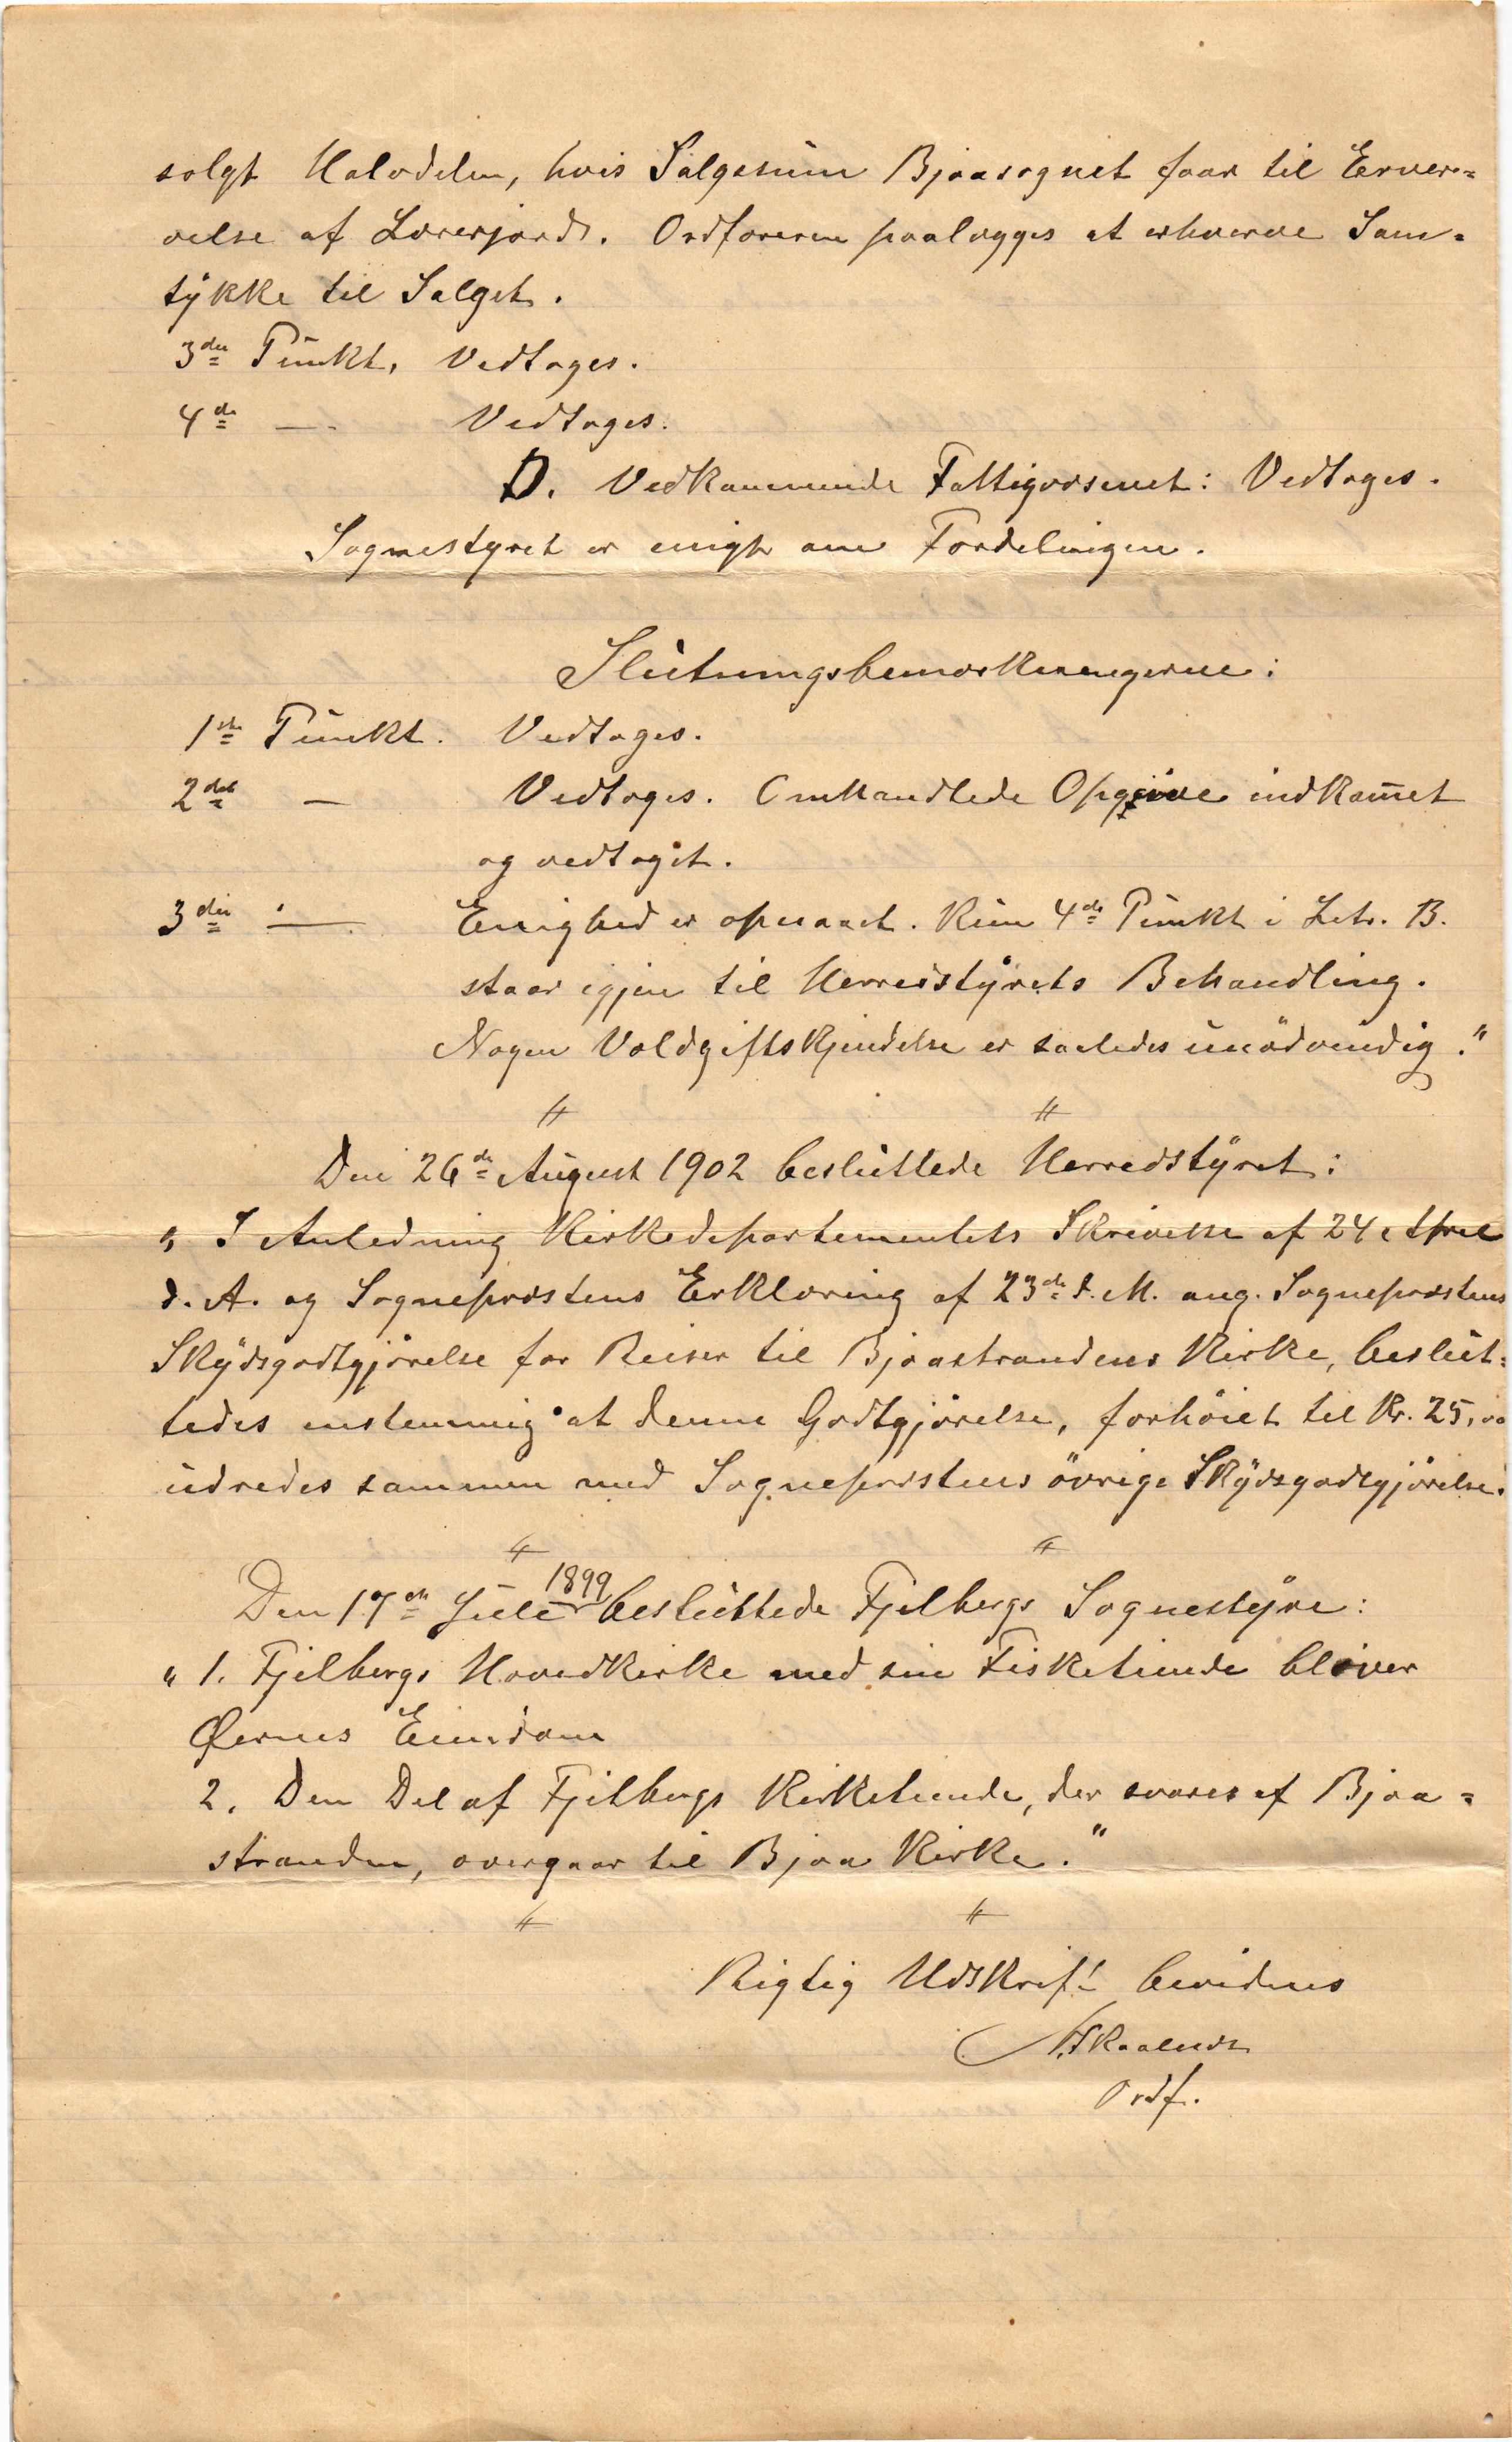 solgt Halvdelen, hvis Salgssum Bjoasognet faar til Erver=
velse af Lærerjord. Ordføreren paalægges at erhverve Sam=
tykke til Salget.
3die Punkt, Vedtages.
4de — Vedtages.
D. Vedkommende Fattigvæsenet: Vedtages.
Sognestyret er enigt om Fordelingen.
Slutningsbemærkningerne:
1ste Punkt. Vedtages.
2det — Vedtages. Omhandlede Opgave indkom̅et
og vedtaget.
3die — Enighed er opnaaet. Kun 4de Punkt i Litr. B.
staar igjen til Herredsstyrets Behandling.
Nogen Voldgiftskjendelse er saaledes unødvendig."
Den 26de August 1902 besluttede Herredstyret:
„I Anledning Kirkedepartementets Skrivelse af 24 April
d. A. og Sogneprestens Erklæring af 23de d. M. ang. Sogneprestens
Skydsgodtgjørelse for Reiser til Bjoastrandens Kirke, beslut=
tedes enstemmig at denne Godtgjørelse, forhøiet til Kr. 25,00
udredes sammen med Sogneprestens øvrige Skydsgodtgjørelse.
Den 17de Juli 1899 besluttede Fjelbergs Sognestyre:
„1. Fjelbergs Hovedkirke med sin Fisketiende bliver
Øernes Eiendom
2. Den Del af Fjelbergs Kirketiende, der svares af Bjoa=
stranden, overgaar til Bjoa Kirke."
Rigtig Udskrift bevidnes
Skaalnes
Ordf.